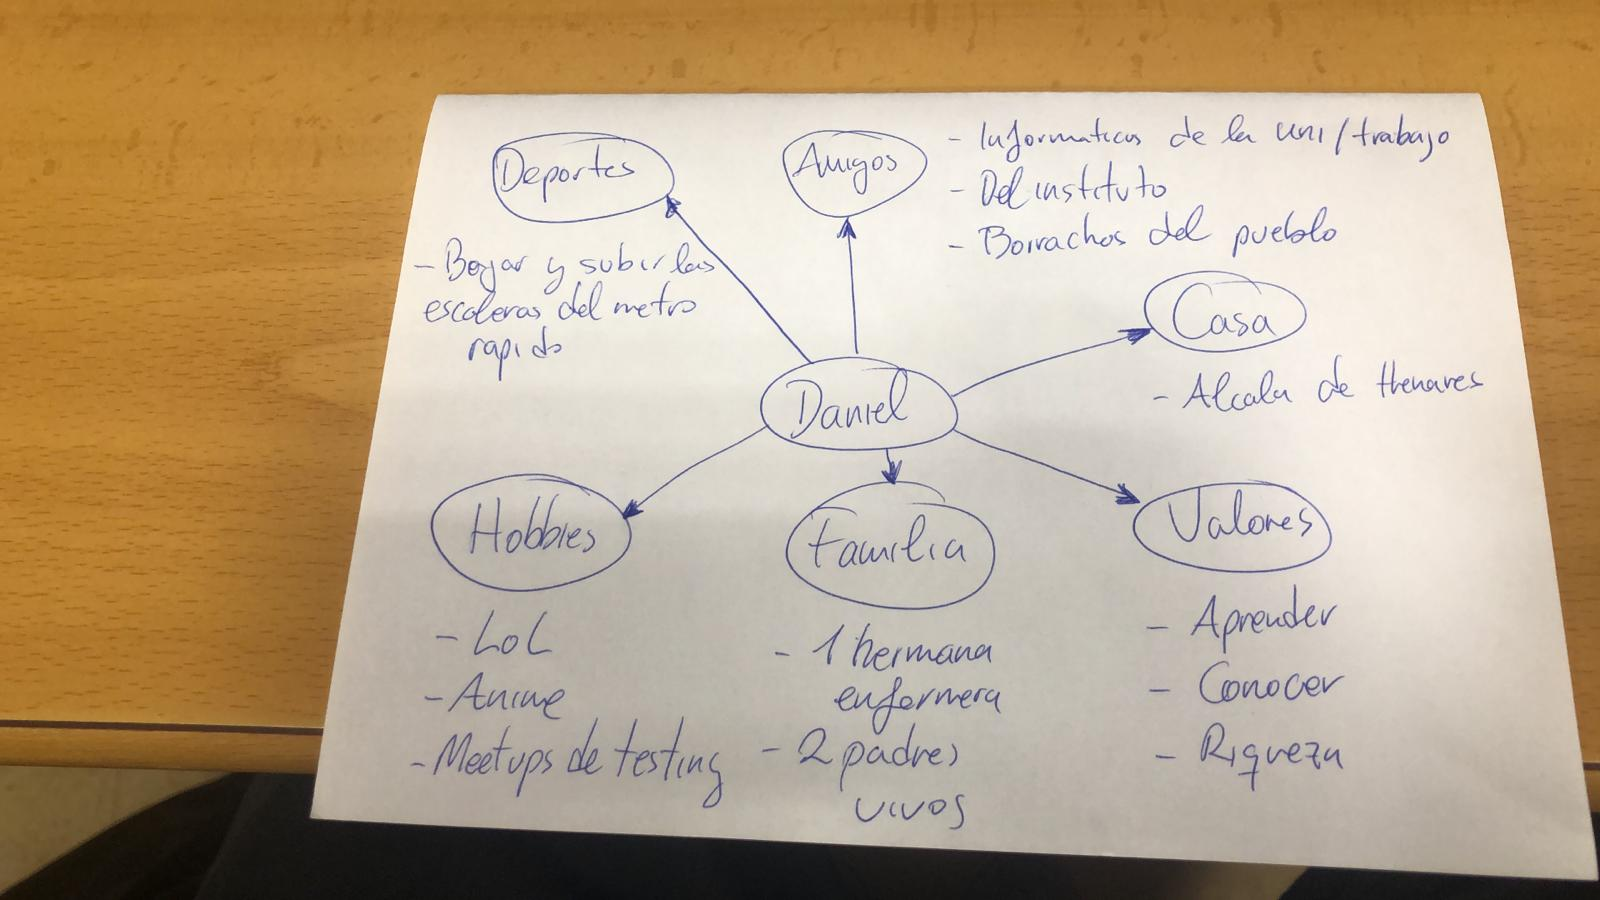 Deportes
- Bogar y subir las
escaleras del metro
rapido
Amigos
- Informaticos de la uni/trabajo
- Del instituto
- Borrachos del pueblo
Casa
- Alcala de Henares
Daniel
Hobbies
- LoL
- Anime
- Meetups de testing
Familia
- 1 hermana
enfermera
- 2 padres
vivos
Valores
- Aprender
- Conocer
- Riqueza